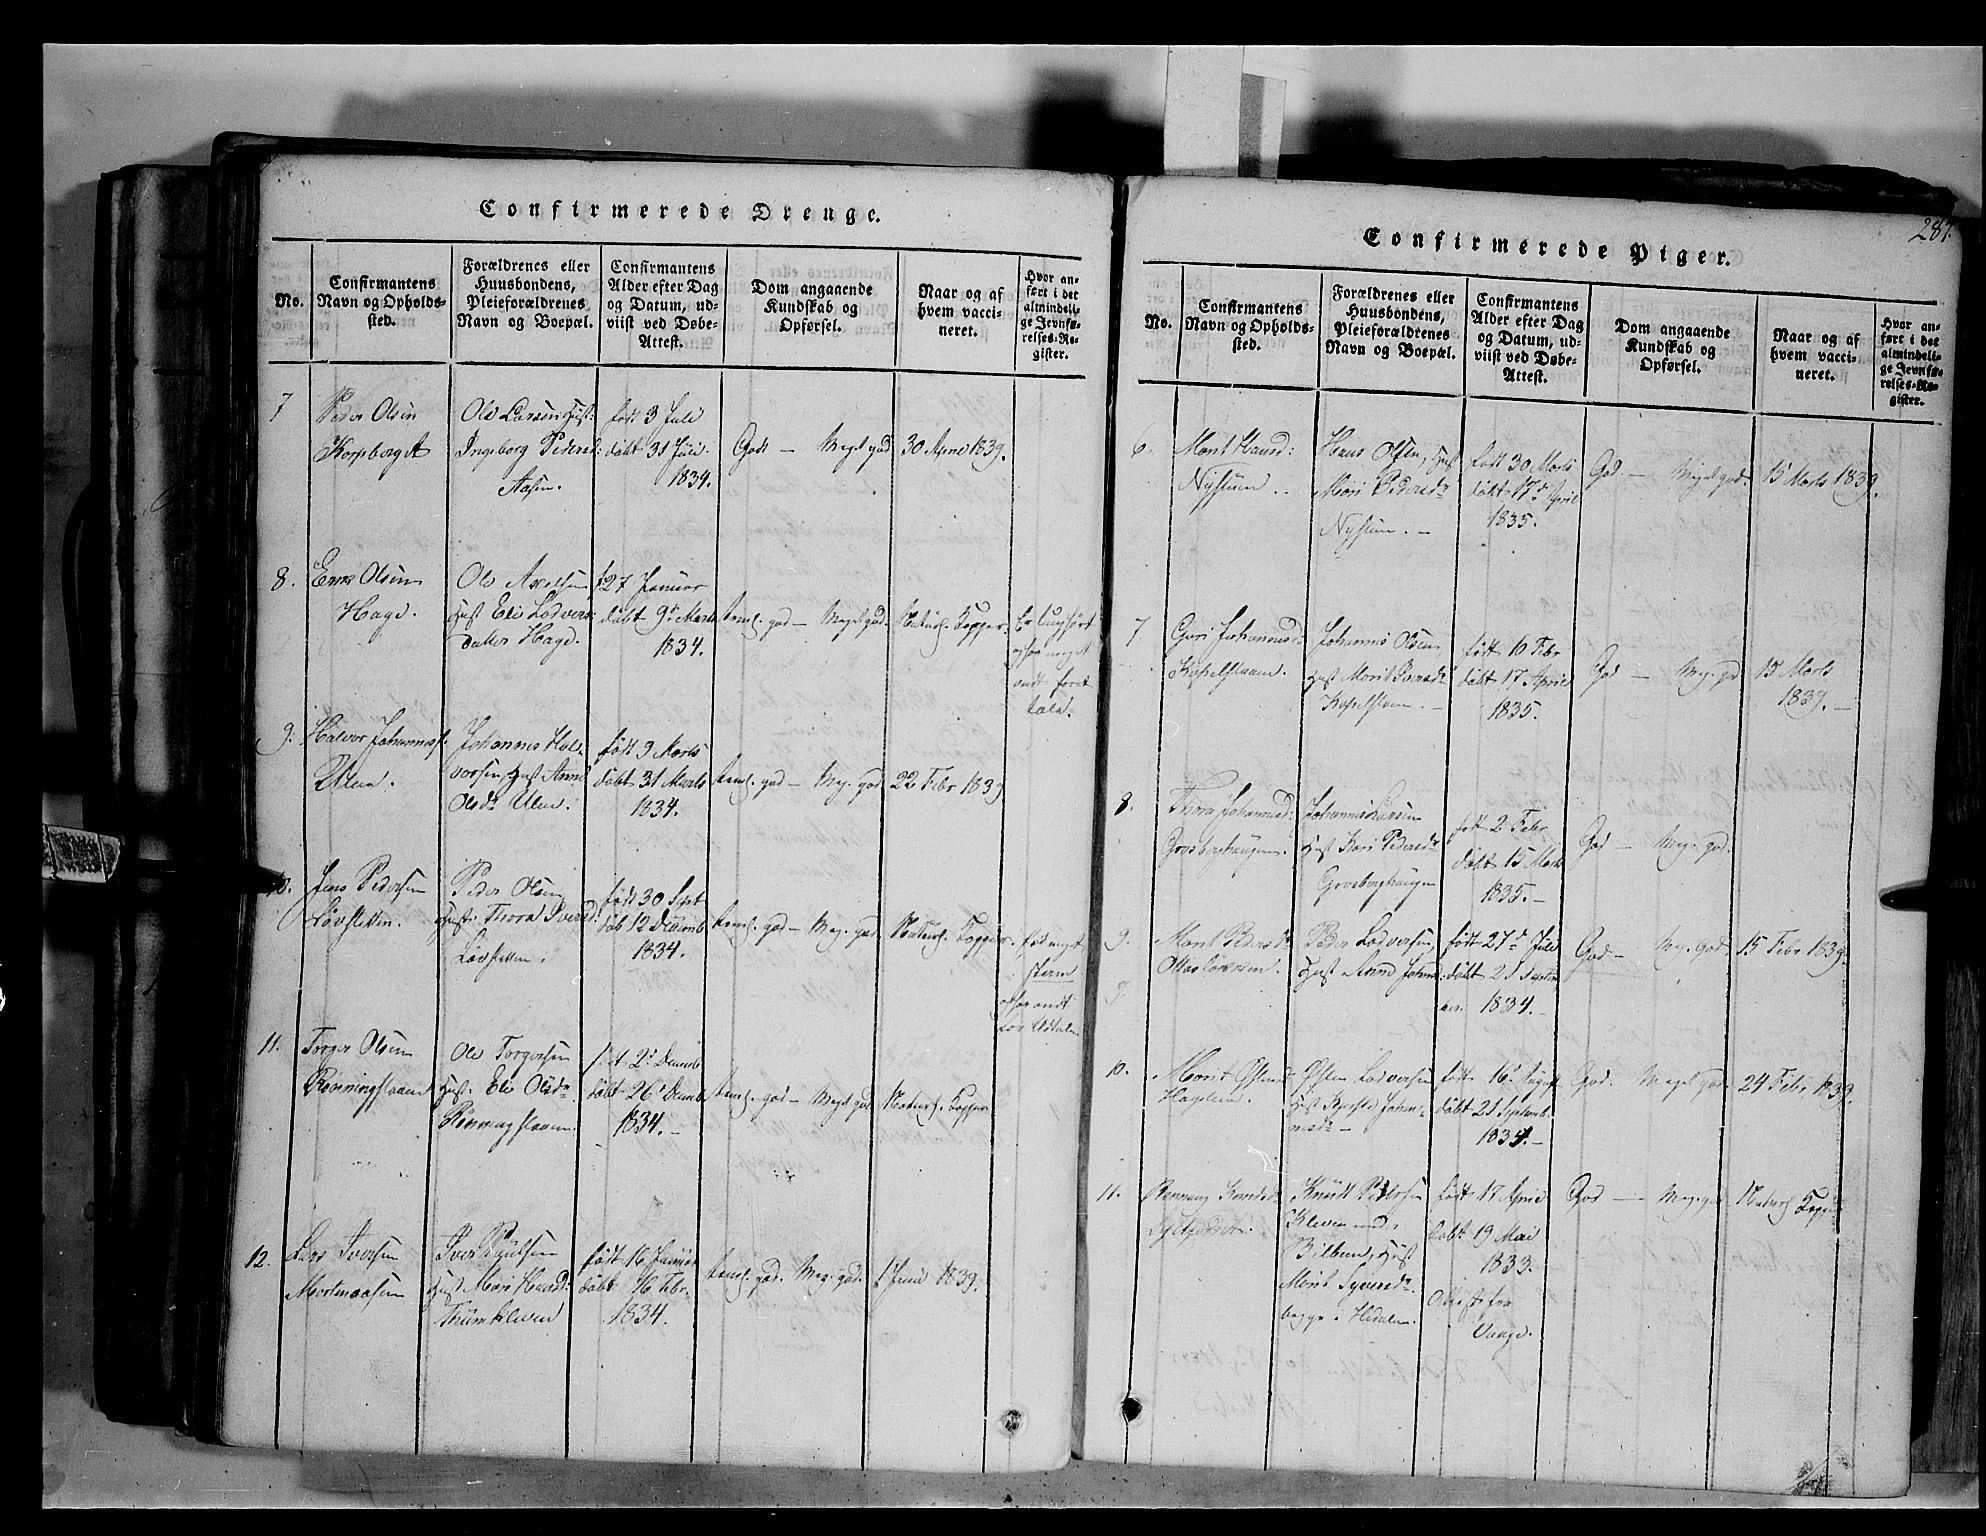 Confirmerede Drenge.
No.
Confirmantens
Navn og Opholds-
sted.
Forældrenes eller
Huusbondens,
Pleieforældrenes
Navn og Boepæl.
Confirmantens
Alder efter Dag
og Datum, ud-
viist ved Døbe-
Attest.
Dom angaaende
Kundskab og
Opførsel.
Naar og af
hvem vacci-
neret.
Hvor an-
ført i det
almindeli-
ge Jevnfø-
relses-Re-
gister.
7
Peder Olsen
Korpberget
Ole Larsen Hust:
Ingeborg Pedersd:
Aasen.
født 3 Juli
døbt 31 Juli
1834.
Godt — Meget god
30 April 1839.
8.
Olsen
Hage.
Ole Axelsen
Hust Eli Lodvers
datter Hage.
f. 27 Januar
døbt 9de Marts
1834.
temel. god — Meget god.
Naturl. Kopper.
9.
Halvor Johanness.
Ulen.
Johannes Hal-
vorsen, Hust Anne
Olsdr Ulen.
født 9 Marts
døbt 31 Marts
1834.
temel. god — Meg. god.
22 Febr 1839
10.
Jens Pedersen
Løvsletten.
Peder Olsen
Hust. Thora Iversd:
Løvsletten.
født 30 Sept
døb 12 Decemb
1834.
temel. god — Meg. god
Naturl. Kopper.
11.
Torger Olsen
Rønningslaaen
Ole Torgersen
Hust. Eli Olsdr
Rønningslaaen.
f. d. 2d Decemb
døbt 26d Decemb
1834. —
temel. god — Meget god
Naturl. Kopper
12.
Lars Iversen
Mortenaasen
Iver Paulsen
Hust Mari Hansd:
født 16 Januar
døbt 16 Febr.
1834.
temel. god. Meg. god.
1 Juni 1839.
287.
Confirmerede Piger.
No.
Confirmantens
Navn og Opholds-
sted.
Forældrenes eller
Huusbondens,
Pleieforældrenes
Navn og Boepæl.
Confirmantens
Alder efter Dag
og Datum, ud-
viist ved Døbe-
Attest.
Dom angaaende
Kundskab og
Opførsel.
Naar og af
hvem vacci-
neret.
Hvor an-
ført i det
almindeli-
ge Jevnfø-
relses-Re-
gister.
6.
Marit Hansd:
Nystuen
Hans Olsen, Hust
Mari Pedersdr
Nystuen. —
født 30 Marts
døbt 17d April
1835.
God — Meget god.
15 Marts 1839.
7
Guri Johannesdr
Johannes Olsen
Hust Marit Iversdr
født 10 Febr
døbt 17 April
1835.
God — Meg. god
15 Marts
1839. —
8.
Thora Johannesd:
Grosberghaugen.
Johannes Larsen
Hust Kari Pedersdr
Grosberghaugen
født 2 Febr
døbt 15 Marts
1835. —
God — Meg. god.
9.
Marit Pedersdr
Peder Lodversen,
Hust Anne Johan.
født 27d Juli
døbt 21 Septem
ber. 1834. —
God — Meg. god.
15 Febr 1839.
10.
Marit Østensd
Østen Lodversen
Hust Kjersti Johan-
nesdr —
født 16d August
døbt 21 Septemb.
1834. —
God. Meget god
24 Febr. 1839.
11.
Rønnaug Knudsdr
Knudt Pedersen
Kleven
Hust
Marit Syversdr
begge i Hedalen.
født 17 April
døbt 19 Mai
1833.
Attest fra
Vaage.
God — Meg. god
Naturl. Kopper